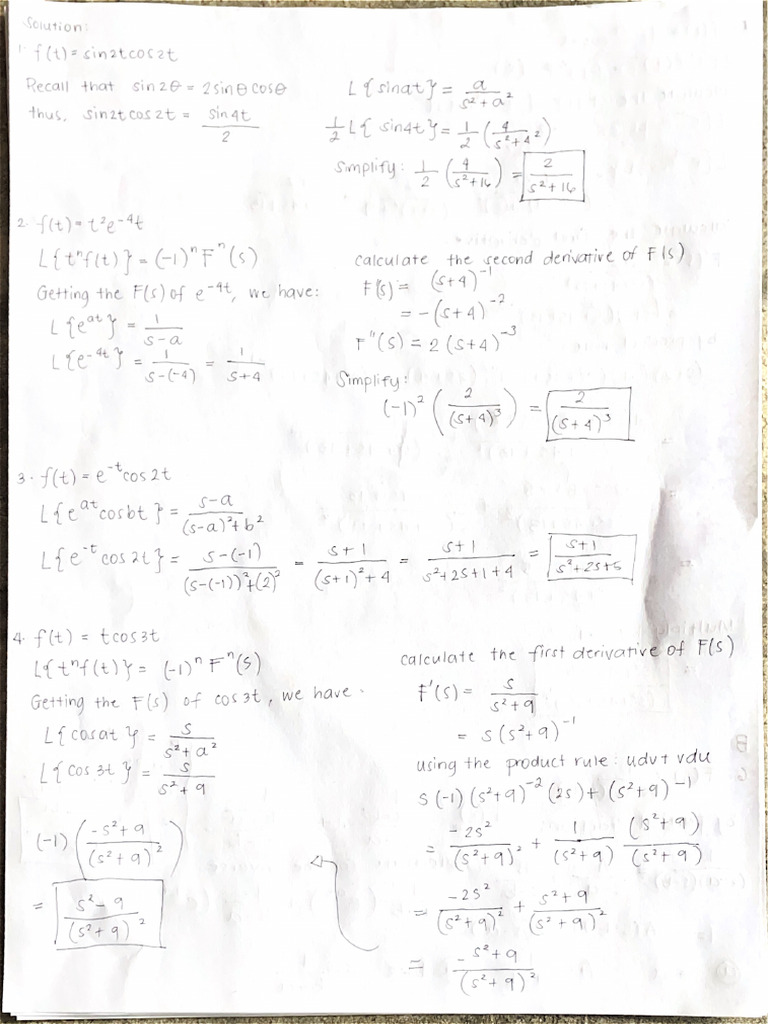 Solution:
1. f(t) = sin2tcos2t
Recall that sin2θ = 2sinθcosθ
thus, sin2tcos2t = sin4t / 2
L{sinat} = a / s² + a²
1/2 L{sin4t} = 1/2 (4 / s² + 4²)
Simplify: 1/2 (4 / s² + 16) = 2 / s² + 16
2. f(t) = t²e⁻⁴ᵗ
L{tⁿf(t)} = (-1)ⁿ Fⁿ(s)
Getting the F(s) of e⁻⁴ᵗ, we have:
L{eᵃᵗ} = 1 / s-a
L{e⁻⁴ᵗ} = 1 / s-(-4) = 1 / s+4
calculate the second derivative of F(s)
F'(s) = (s+4)⁻¹
= -(s+4)⁻²
F"(s) = 2(s+4)⁻³
Simplify:
(-1)² (2 / (s+4)³) = 2 / (s+4)³
3. f(t) = e⁻ᵗcos2t
L{eᵃᵗcosbt} = s-a / (s-a)²+b²
L{e⁻ᵗcos2t} = s-(-1) / (s-(-1))²+(2)² = s+1 / (s+1)²+4 = s+1 / s²+2s+1+4 = s+1 / s²+2s+5
4. f(t) = tcos3t
L{tⁿf(t)} = (-1)ⁿ Fⁿ(s)
Getting the F(s) of cos3t, we have.
L{cosat} = s / s²+a²
L{cos3t} = s / s²+9
(-1) (-s²+9 / (s²+9)²)
= s²-9 / (s²+9)²
calculate the first derivative of F(s)
F'(s) = s / s²+9
= s(s²+9)⁻¹
using the product rule: udv+vdu
s(-1)(s²+9)⁻²(2s) + (s²+9)⁻¹
= -2s² / (s²+9)² + 1 / (s²+9) (s²+9) / (s²+9)
= -2s² / (s²+9)² + s²+9 / (s²+9)²
= -s²+9 / (s²+9)²